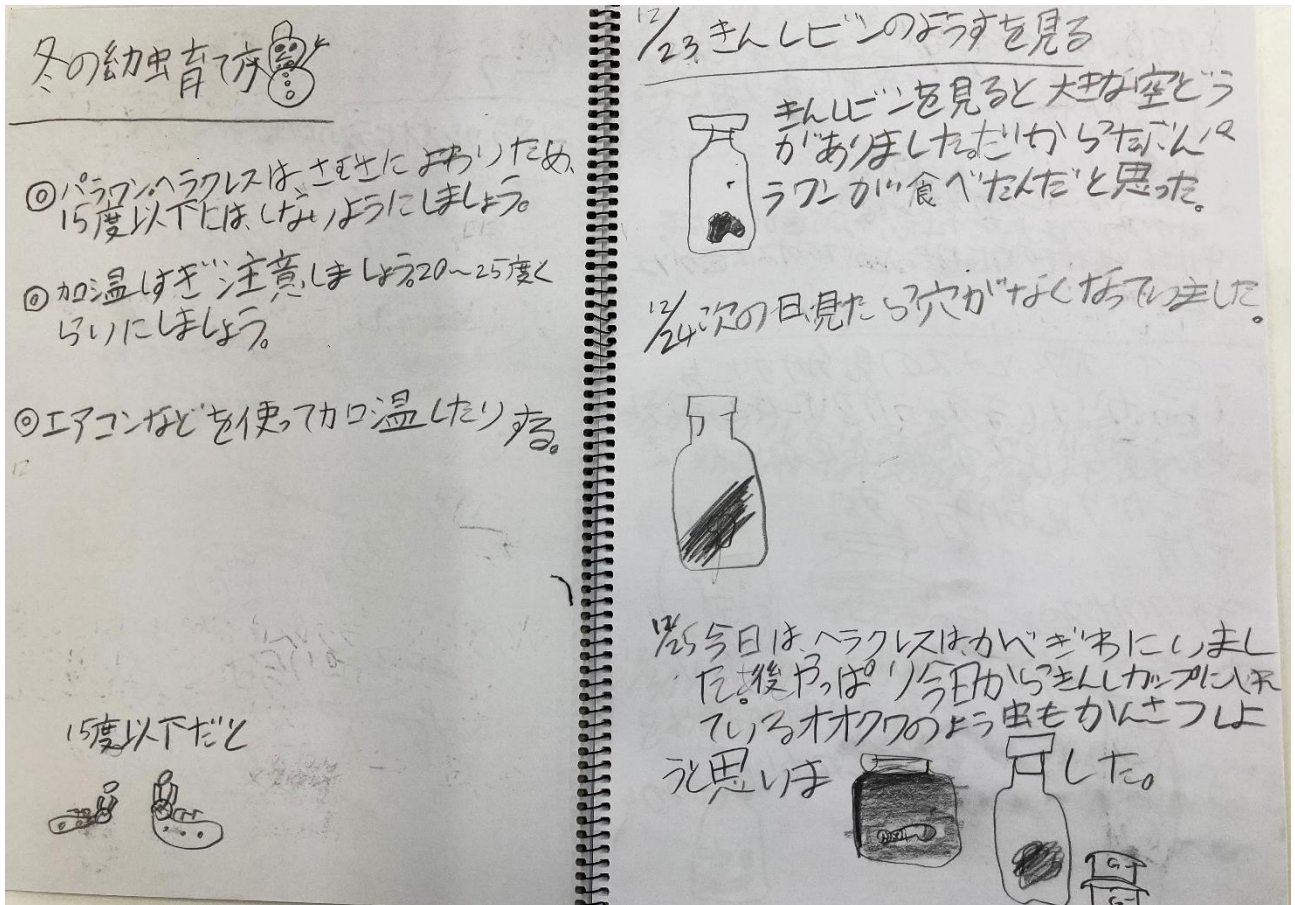 冬の幼虫育て方
◎パラワン。ヘラクレスは、さむさによわいため、
15度以下には、しないようにしましょう。
◎加温しすぎ注意しましょう。20~25度く
らいにしましょう。
◎エアコンなどを使って加温したりする。
15度以下だと
12/23.きんしビンのようすを見る
きんしビンを見ると大きな空どう
がありました。だからたぶんパ
ラワンが食べたんだと思った。
12/24次の日、見たら穴がなくなっていました。
12/25今日は、ヘラクレスは、かべぎわにいまし
た。後やっぱり今日からきんしカップに入れ
ているオオクワのよう虫もかんさつしよ
うと思いま した。